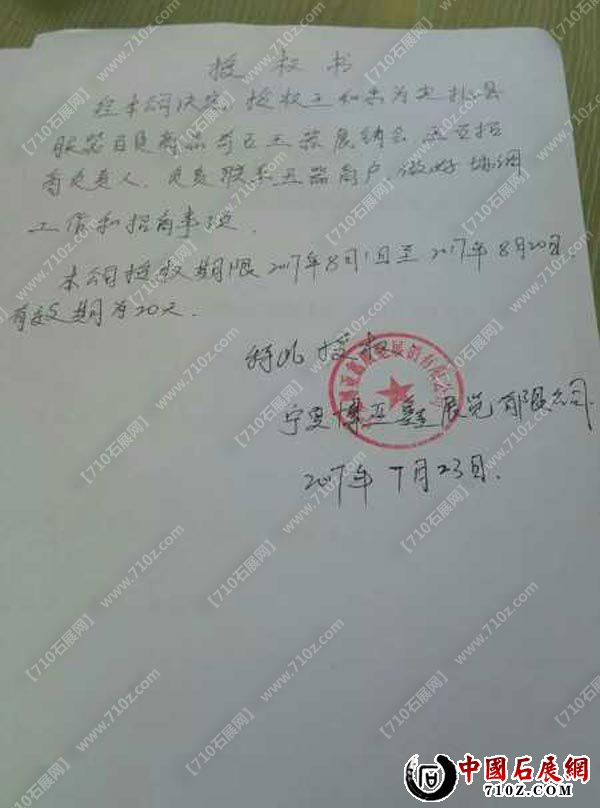 授权书
经本公司决定，授权王和忠为定北县
服装百货商品奇石玉器展销会，玉石招
商负责人，负责联系玉器商户，做好协调
工作和招商事宜.
本公司授权期限2017年8月1日至2017年8月20日
有效期为20天.
特此授权
宁夏博亚鑫展览有限公司
2017年7月23日.
【710石展网】 www.710z.com
中國石展網
710Z.COM